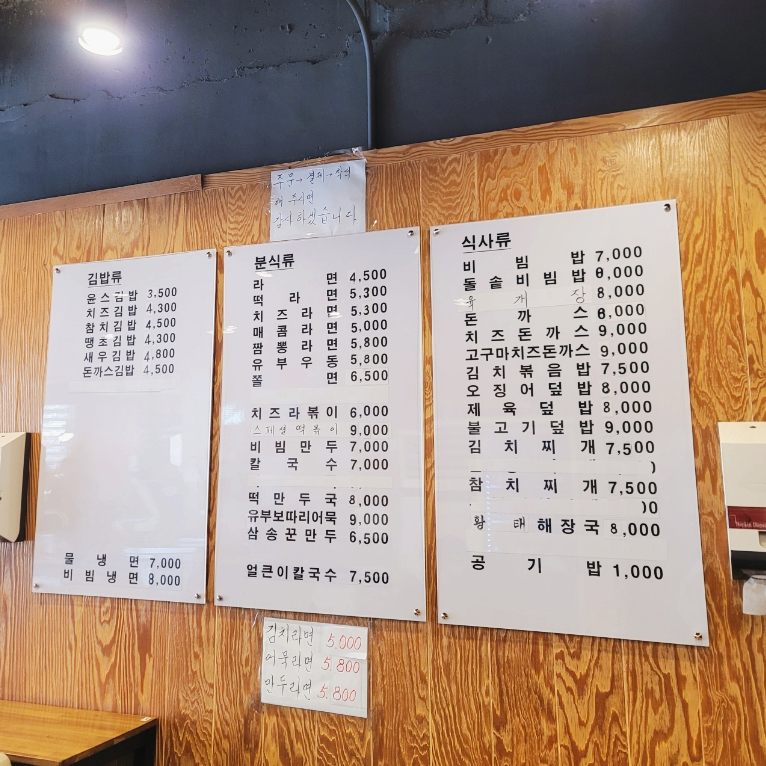 주문→결제→착석
해 주시면
감사하겠습니다
김밥류
윤스김밥 3,500
치즈김밥 4,300
참치김밥 4,500
땡초김밥 4,300
새우김밥 4,800
돈까스김밥 4,500
물냉면 7,000
비빔냉면 8,000
분식류
라면 4,500
떡라면 5,300
치즈라면 5,300
매콤라면 5,000
짬뽕라면 5,800
유부우동 5,800
쫄면 6,500
치즈라볶이 6,000
스페셜떡볶이 9,000
비빔만두 7,000
칼국수 7,000
떡만두국 8,000
유부보따리어묵 9,000
삼송꾼만두 6,500
얼큰이칼국수 7,500
식사류
비빔밥 7,000
돌솥비빔밥 8,000
육개장 8,000
돈까스 8,000
치즈돈까스 9,000
고구마치즈돈까스 9,000
김치볶음밥 7,500
오징어덮밥 8,000
제육덮밥 8,000
불고기덮밥 9,000
김치찌개 7,500
참치찌개 7,500
황태해장국 8,000
공기밥 1,000
김치라면 5,000
어묵라면 5,800
만두라면 5,800